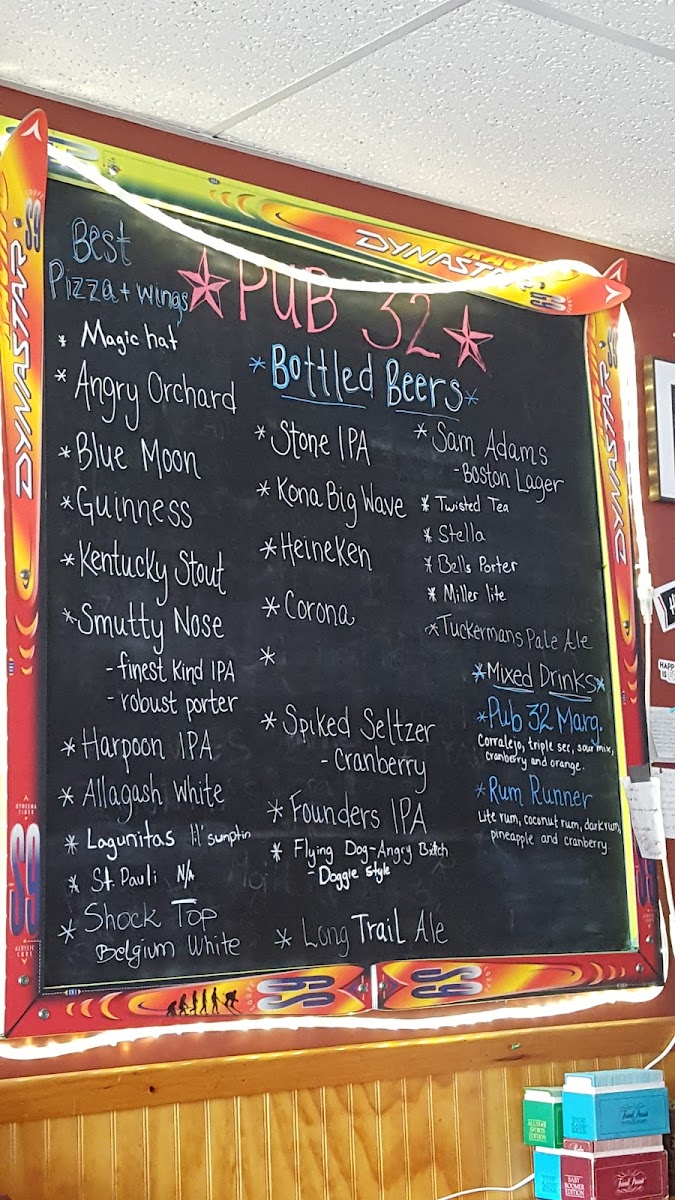 Best
Pizza + wings
PUB 32
* Magic hat
* Angry Orchard
* Blue Moon
* Guinness
* Kentucky Stout
* Smutty Nose
- finest Kind IPA
- robust porter
* Harpoon IPA
* Allagash White
* Lagunitas lil' sumptin
* St. Pauli N/A
* Shock Top
Belgium White
* Bottled Beers *
* Stone IPA
* Kona Big Wave
* Heineken
* Corona
*
* Spiked Seltzer
- Cranberry
* Founders IPA
* Flying Dog-Angry Bitch
- Doggie style
* Long Trail Ale
* Sam Adams
- Boston Lager
* Twisted Tea
* Stella
* Bells Porter
* Miller lite
* Tuckermans Pale Ale
* Mixed Drinks *
* Pub 32 Marg.
Corralejo, triple sec, sour mix,
cranberry and orange.
* Rum Runner
Lite rum, coconut rum, dark rum,
pineapple and cranberry
DYNASTAR
S9
DYNASTAR
S9
DYNASTAR
S9
S9
S9
Trivial Pursuit
BABY
BOOMER
EDITION
Trivial Pursuit